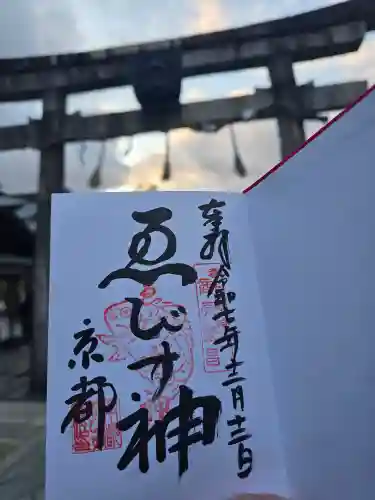 奉拝 令和七年十二月十三日
ゑびす神
京都